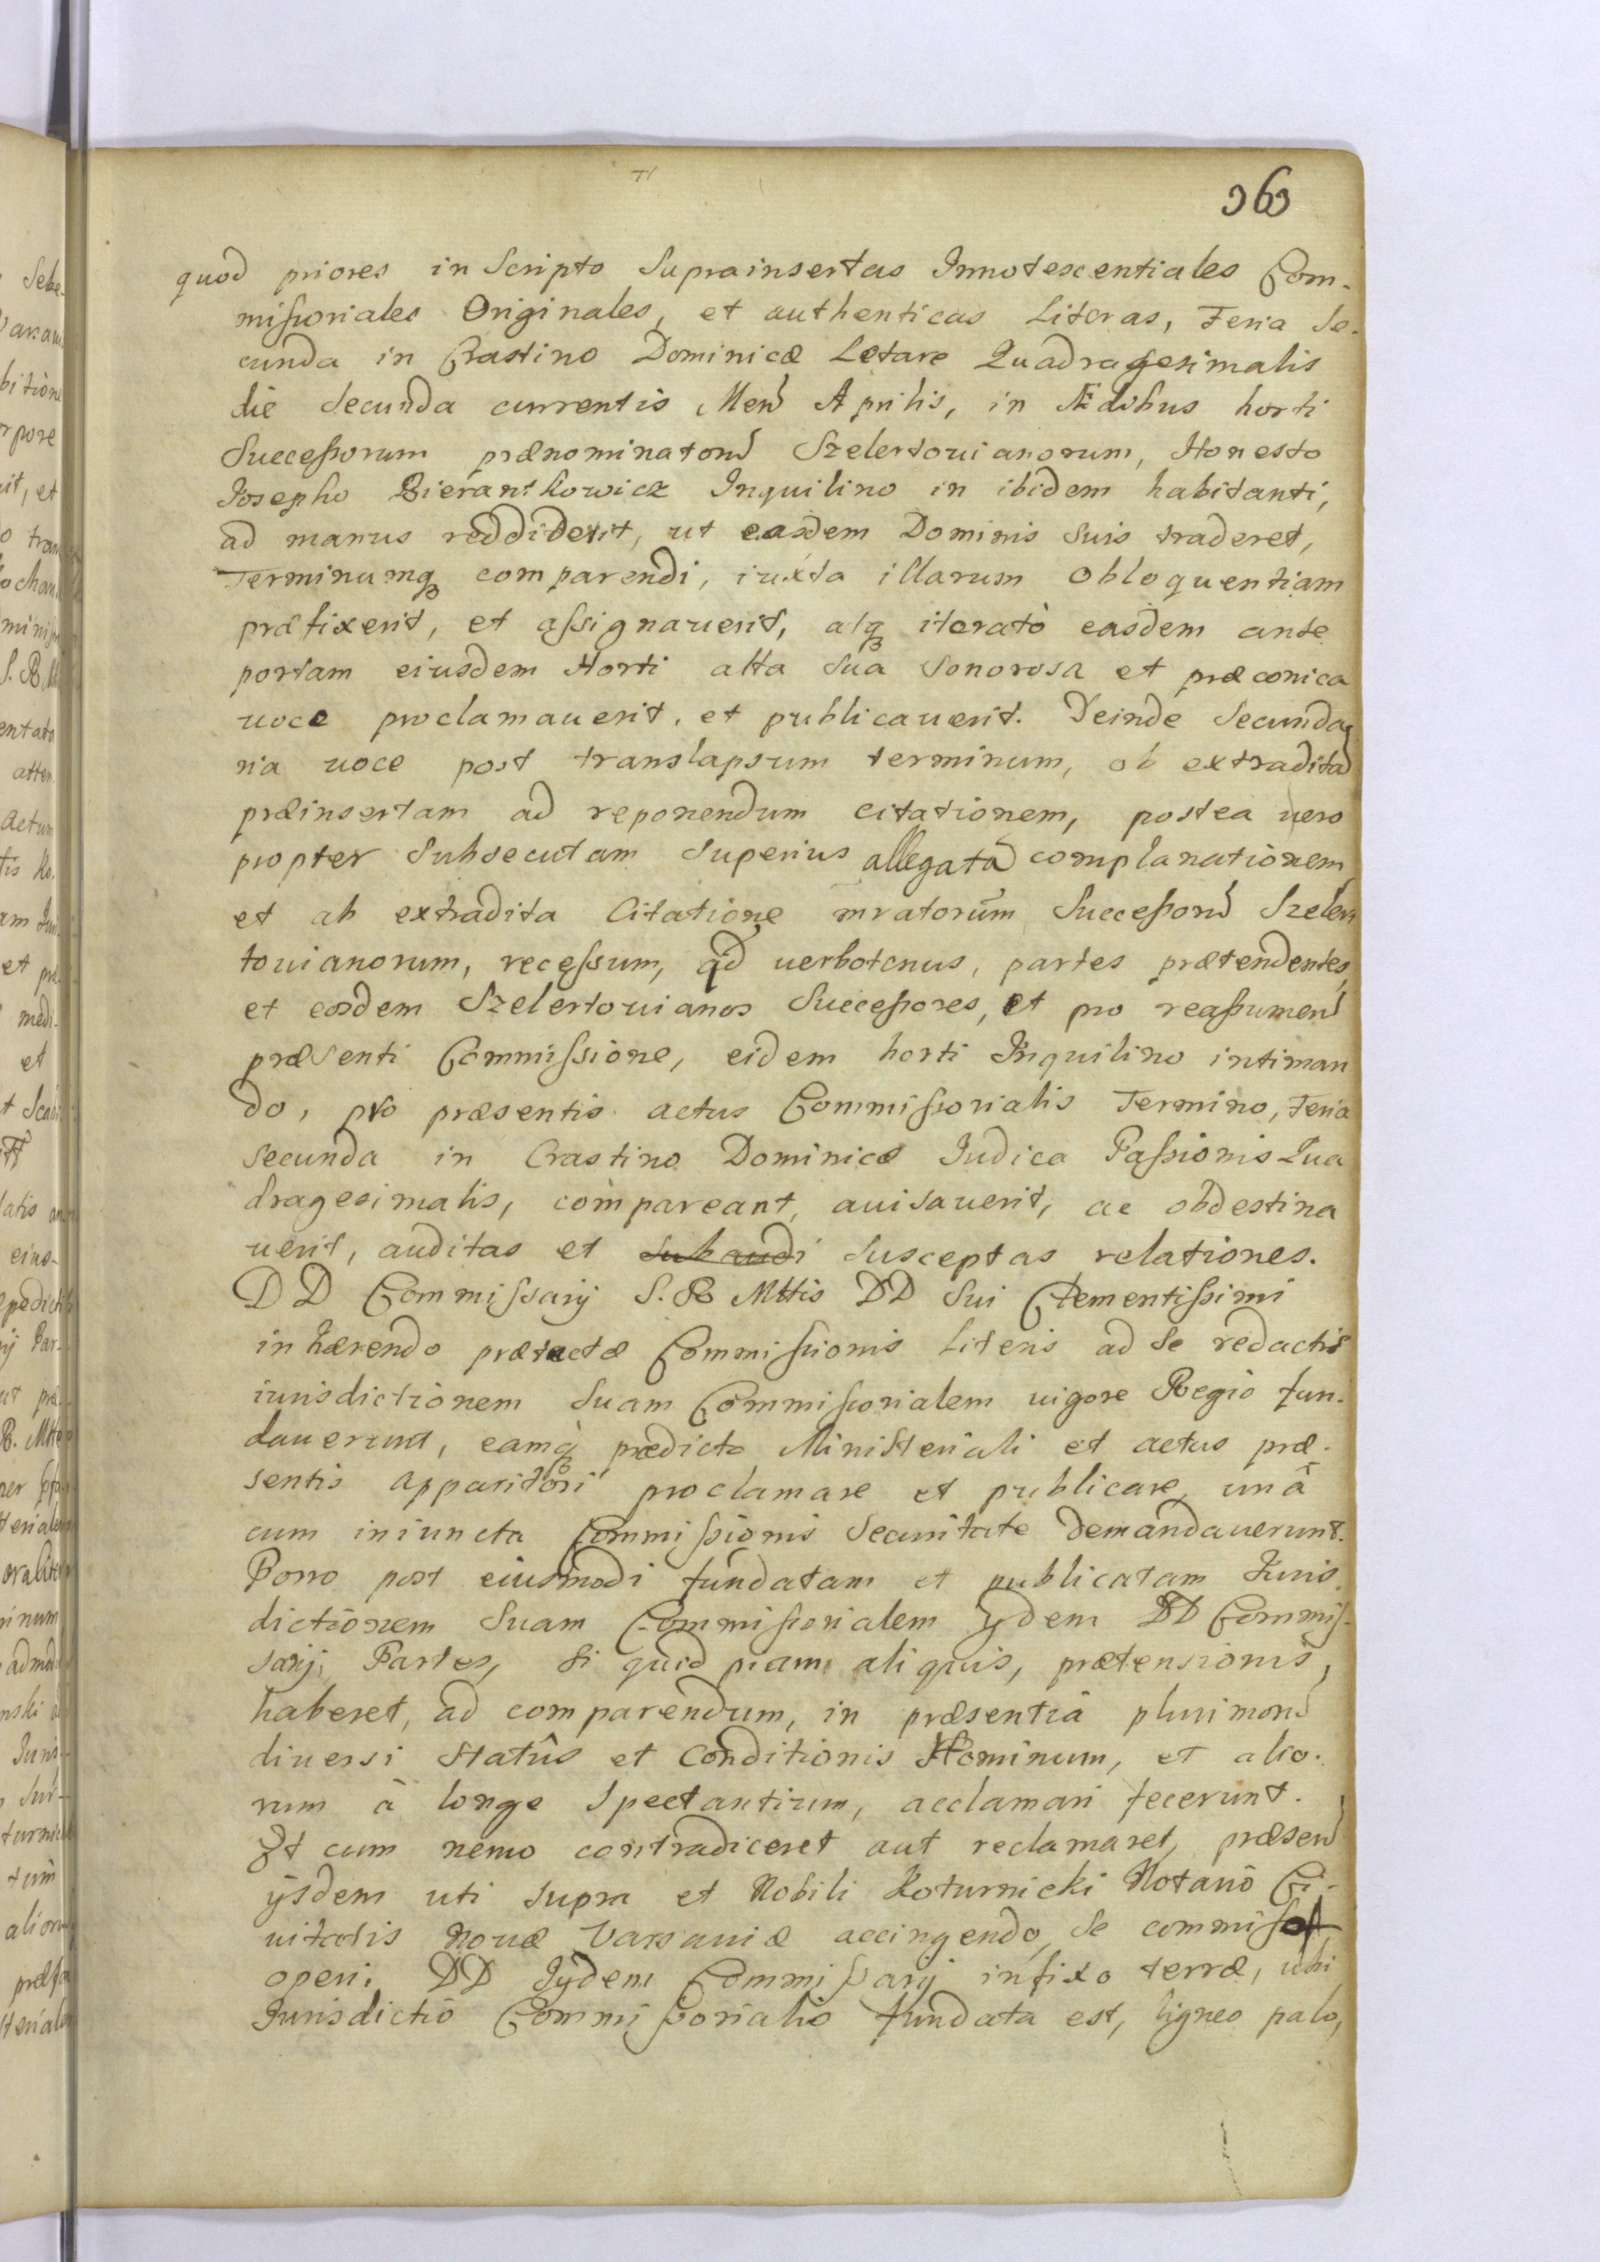 363
quod priores in Scripto Suprainsertas Innotescentiales Com-
missoriales Originales, et authenticas Literas, Feria Se-
cunda in Crastino Dominicæ Letare Quadragesimalis
die Secunda currentis Mens Aprilis, in Ædibus horti
Successorum prænominators Szelertouianorum, Honesto
Josepho Bierantkowicz Inquilino in ibidem habitanti,
ad manus reddiderit, ut easdem Dominis Suis traderet,
Terminumq comparendi, iuxta illarum obloquentiam
præfixerit, et assignauerit, atq iteratò easdem ante
portam eiusdem Horti alta Sua Sonorosa et præconica
uoce proclamauerit, et publicauerit. Deinde Secunda
ria uoce post translapsum terminum, ob extradita
præinsertam ad reponendum citationem, postea uero
propter Subsecutam Superius allegatã complanationem
et ab extradita Citatione mratorum Successors Szeler
touianorum, recessum, qd uerbotenus, partes prætendentes
et eosdem Szelertouianos Successores, et pro reassumens
præsenti Commissione, eidem horti Inquilino intiman
do, pro præsentis actus Commissorialis Termino, Feria
Secunda in Crastino Dominicæ Judica Passionis Qua
dragesimalis, compareant, auisauerit, ac obdestina
uerit, auditas et subaudi susceptas relationes.
DD Commissarij S. R Mttis DD Sui Clementissimi
inhærendo prætactæ Commissionis Literis ad Se redactis
iurisdictionem Suam Commissorialem uigore Regio fun-
dauerunt, eamq prædicto Ministeriali et actus præ-
sentis apparitori proclamare et publicare, unâ
cum iniuncta Commissionis Securitate demandauerunt.
Porro post eiusmodi fundatam et publicatam Juris
dictionem Suam Commissorialem ijdem DD Commis-
sarij, Partes, Si quid piam aliquis, prætensionis,
haberet, ad comparendum, in præsentia plurimors
diuersi Statûs et Conditionis Hominum, et alio-
rum à longe Spectantium, acclamari fecerunt.
Et cum nemo contradiceret aut reclamaret, præsens
ijsdem uti supra et Nobili Koturnicki Notario Ci-
uitatis Nouæ Varsauiæ accingendo, se commisso
operi. DD Ijdem Commissarij infixo terræ, ubi
Jurisdictio Commissorialis fundata est, ligneo palo,